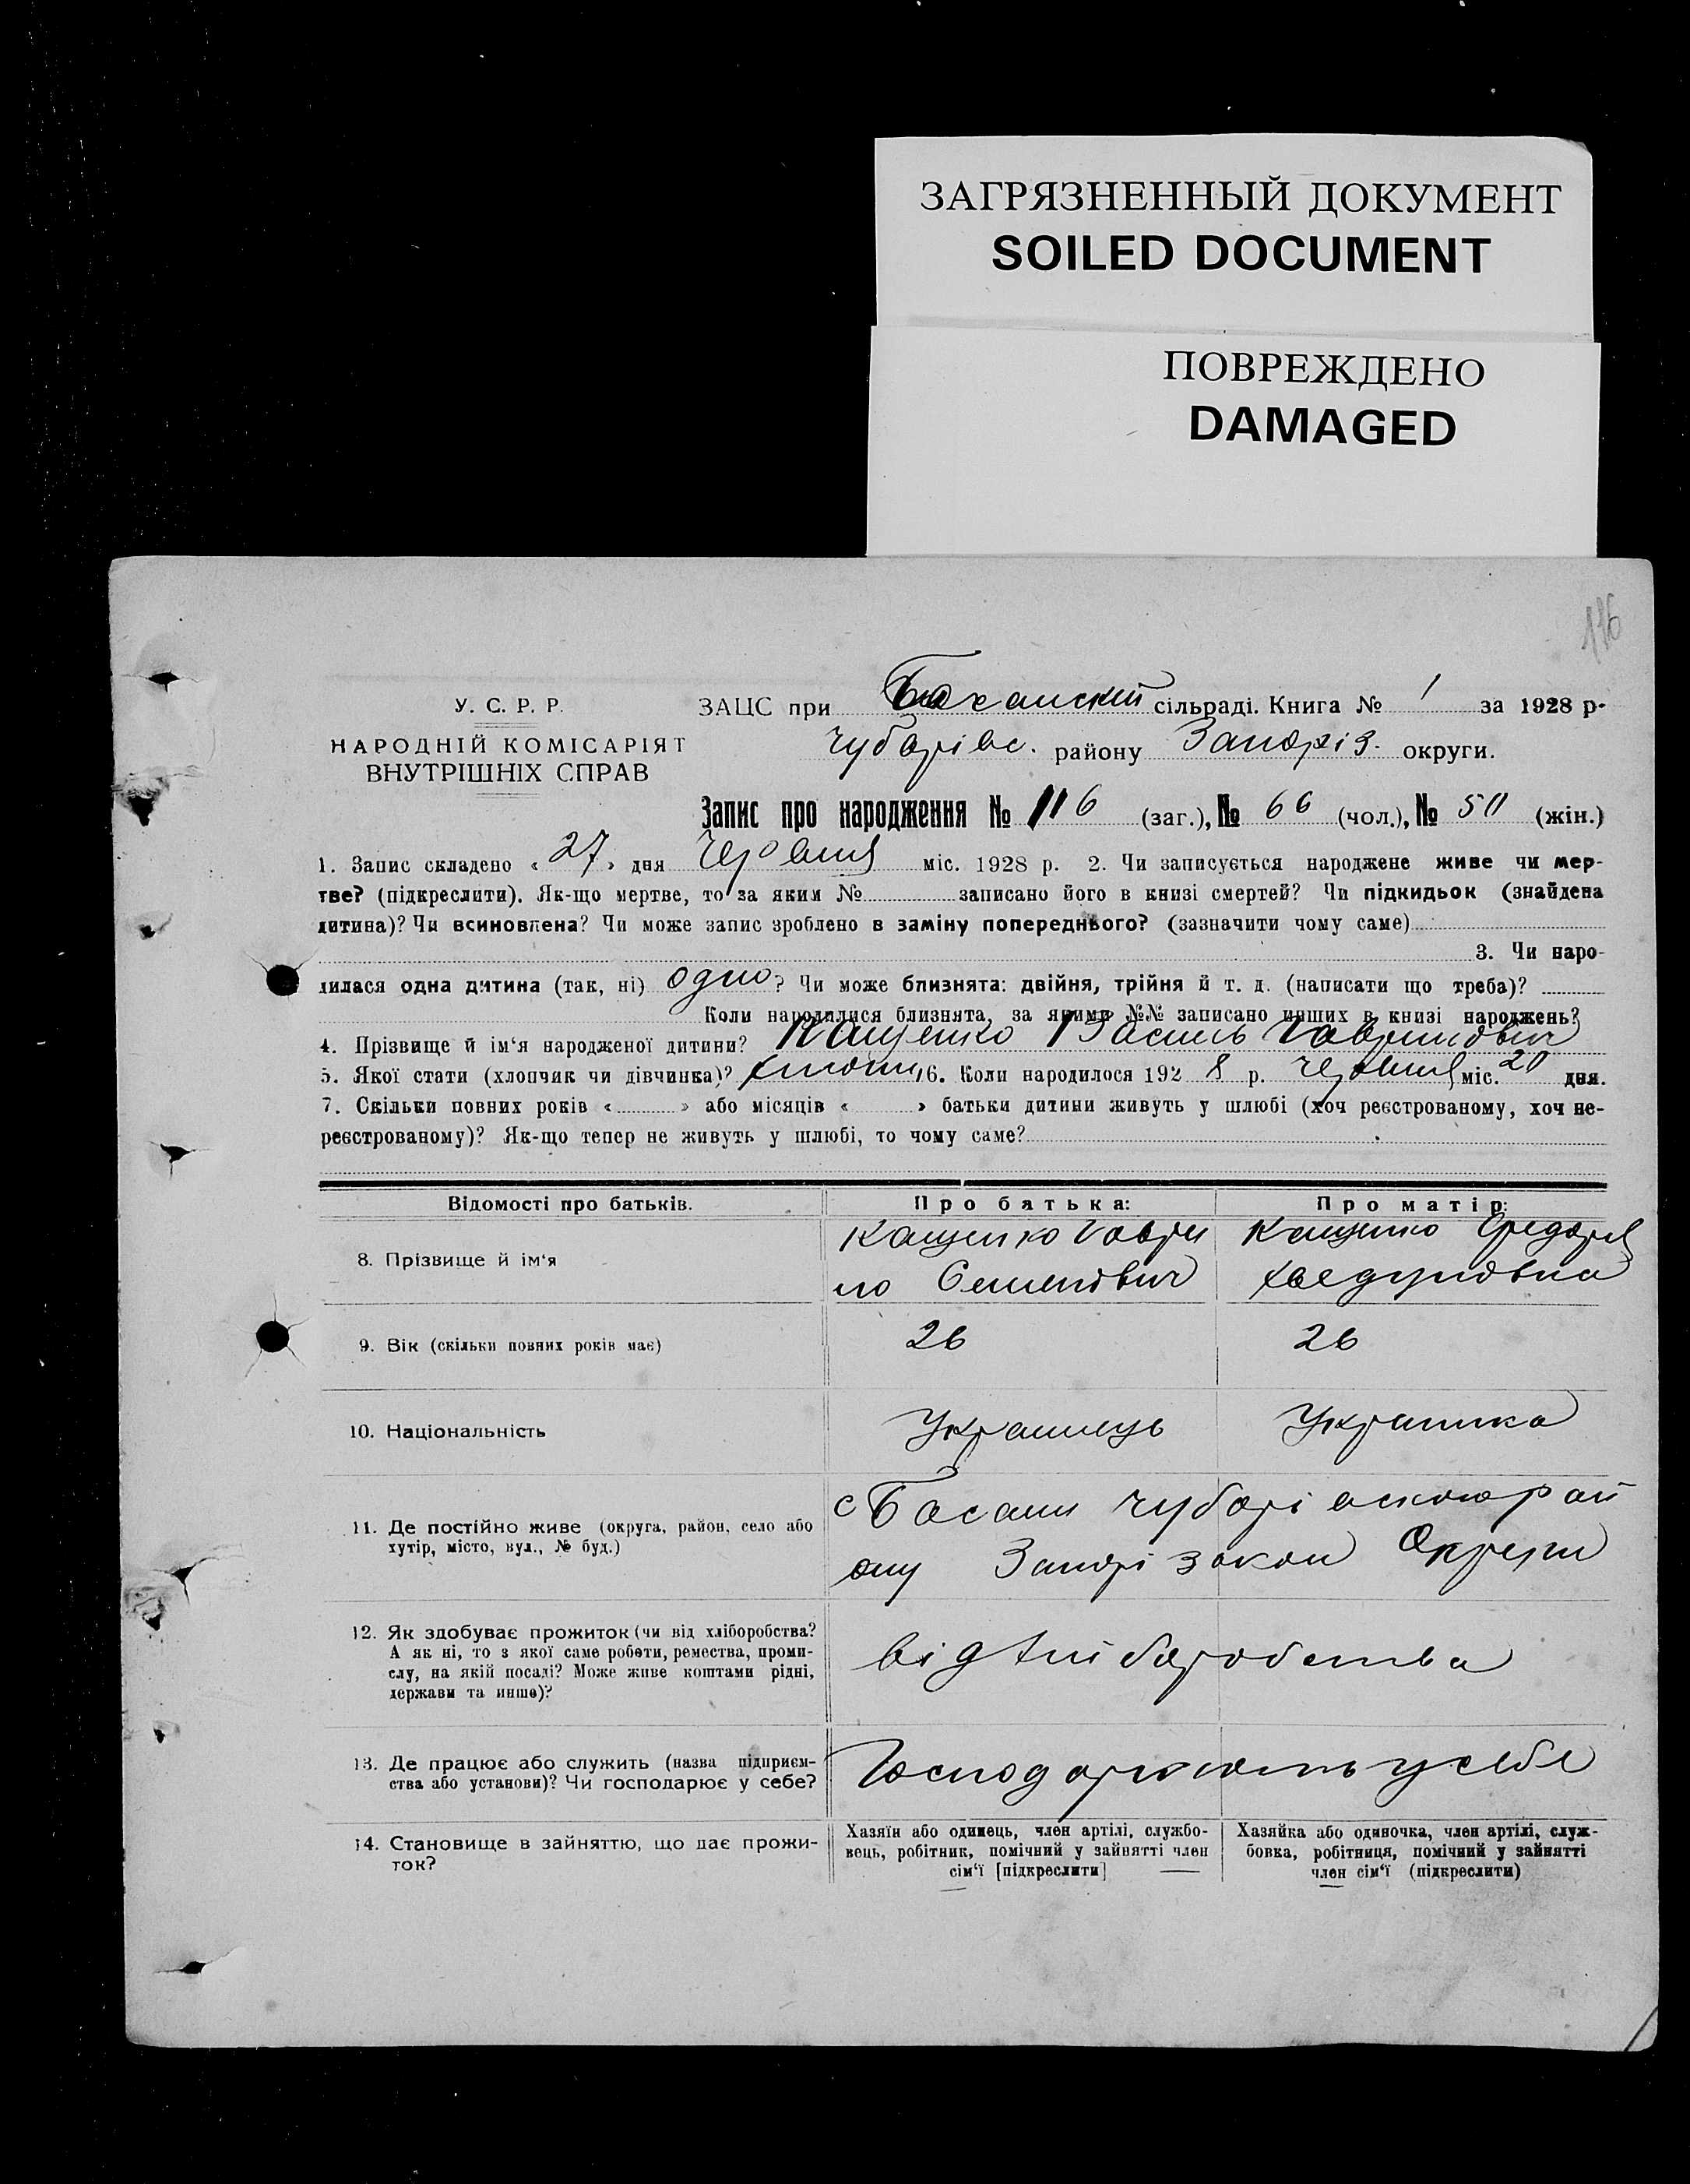 ЗАГРЯЗНЕННЫЙ ДОКУМЕНТ
SOILED DOCUMENT
ПОВРЕЖДЕНО
DAMAGED
116
У. С. Р. Р.
НАРОДНІЙ КОМІСАРІЯТ
ВНУТРІШНІХ СПРАВ
ЗАЦС при Басанскій сільраді. Книга № 1 за 1928 р.
Чубарівс. району Запоріз. округи.
Запис про народження № 116 (заг.), № 66 (чол.), № 50 (жін.)
1. Запис складено « 27 » дня Червня міс. 1928 р. 2. Чи записується народжене живе чи мер-
тве? (підкреслити). Як-що мертве, то за яким № записано його в книзі смертей? Чи підкидьок (знайдена
дитина)? Чи всиновлена? Чи може запис зроблено в заміну попереднього? (зазначити чому саме)
3. Чи наро-
дилася одна дитина (так, ні) одно? Чи може близнята: двійня, трійня й т. д. (написати що треба)?
Коли народилися близнята, за якими №№ записано инших в книзі народжень?
4. Прізвище й ім‘я народженої дитини? Кащенко Василь Гаврилович
5. Якої стати (хлопчик чи дівчинка)? 6. Коли народилося 192 8 р. Червня міс. 20 дня.
7. Скільки повних років « » або місяців « » батьки дитини живуть у шлюбі (хоч реєстрованому, хоч не-
реєстрованому)? Як-що тепер не живуть у шлюбі, то чому саме?
Відомості про батьків. Про батька: Про матір:
8. Прізвище й ім‘я
Кащенко Гаври
ло Семенович
Кащенко Федора
Хведуровна
9. Вік (скільки повних років має) 26 26
10. Національність Украинець Украинка
11. Де постійно живе (округа, район, село або
хутір, місто, вул., № буд.)
с Басани Чубарівского рай
ону Запорізокои Округи
12. Як здобуває прожиток (чи від хліборобства?
А як ні, то з якої саме роботи, ремества, проми-
слу, на якій посаді? Може живе коштами рідні,
держави та инше)?
від хліборобства
13. Де працює або служить (назва підприєм-
ства або установи)? Чи господарює у себе?
Господарюють у себе
14. Становище в зайняттю, що дає прожи-
ток?
Хазяїн або одинець, член артілі, службо-
вець, робітник, помічний у зайнятті член
сім‘ї [підкреслити]
Хазяйка або одиночка, член артілі, служ-
бовка, робітниця, помічний у зайнятті
член сім‘ї (підкреслити)